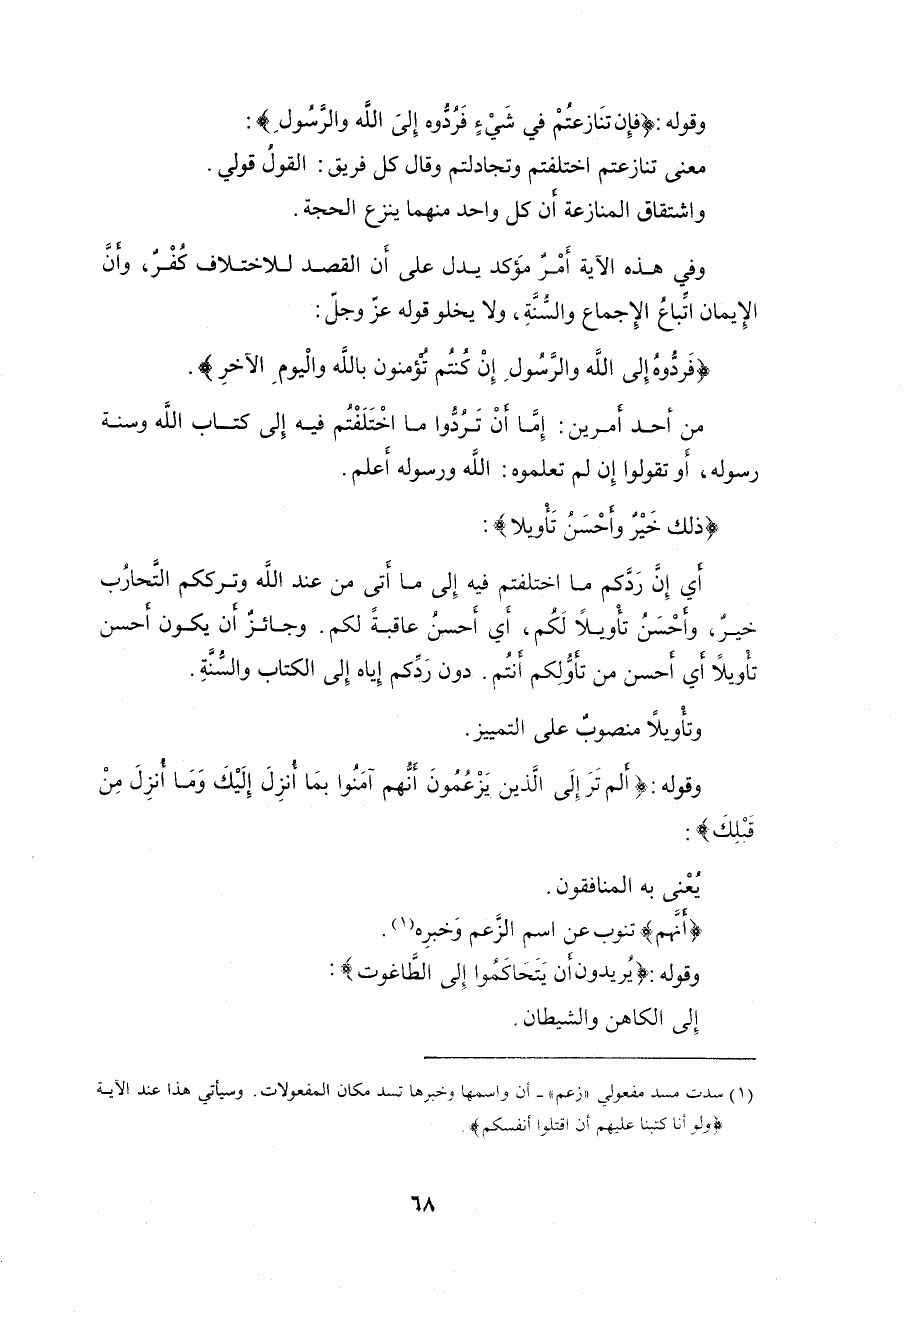 وقوله : ﴿فإِن تَنَازعتُمْ في شَيْءٍ فَرُدُّوه إِلىَ اللَّه والرَّسُولِ﴾ :
معنى تنازعتم اختلفتم وتجادلتم وقال كل فريق : القولُ قولي .
واشتقاق المنازعة أَن كل واحد منهما ينزع الحجة .
وفي هذه الآية أَمْرٌ مؤكد يدل على أَن القصد للاختلاف كُفْرٌ، وأَنَّ
الإِيمان اتِّباعُ الإِجماع والسُّنَّةِ، ولا يخلو قوله عزّ وجلّ :
﴿فَردُّوهُ إِلى اللَّه والرَّسُولِ إِنْ كُنتُم تُؤمنون باللَّه والْيومِ الآخرِ﴾ .
من أَحد أَمرين : إِمَّا أَنْ تَرُدُّوا ما اخْتَلَفْتُم فيه إِلى كتاب اللَّه وسنة
رسوله، أَو تقولوا إِن لم تعلموه : اللَّه ورسوله أَعلم .
﴿ذلك خَيْرٌ وأَحْسَنُ تَأْويلا﴾ :
أَي إِنَّ رَدَّكم ما اختلفتم فيه إِلى ما أَتى من عند اللَّه وترككم التَّحارُب
خيرٌ، وأَحْسَنُ تأْويلاً لَكُم، أَي أَحسنُ عاقبةً لكم . وجائزٌ أَن يكون أَحسن
تأْويلاً أَي أَحسن من تأَوُّلِكم أَنتُم . دون رَدِّكم إِياه إِلى الكتاب والسُّنَّةِ .
وتأْويلاً منصوبٌ على التمييز .
وقوله : ﴿أَلم تَرَ إِلَى الَّذين يَزْعُمُونَ أَنُّهم آمَنُوا بمَا أُنزِلَ إِلَيْكَ وَمَا أُنزِلَ مِنْ
قَبْلِكَ﴾ :
يُعْنى به المنافقون .
﴿أَنَّهم﴾ تنوب عن اسم الزَّعم وَخبرِه(١) .
وقوله : ﴿يُريدون أَن يَتَحَاكَمُوا إلى الطَّاغوت﴾ :
إِلى الكاهن والشيطان .
(١) سدت مسد مفعولي «زعم» ـ أن واسمها وخبرها تسد مكان المفعولات . وسيأتي هذا عند الآية
﴿ولو أنا كتبنا عليهم أن اقتلوا أنفسكم﴾ .
٦٨